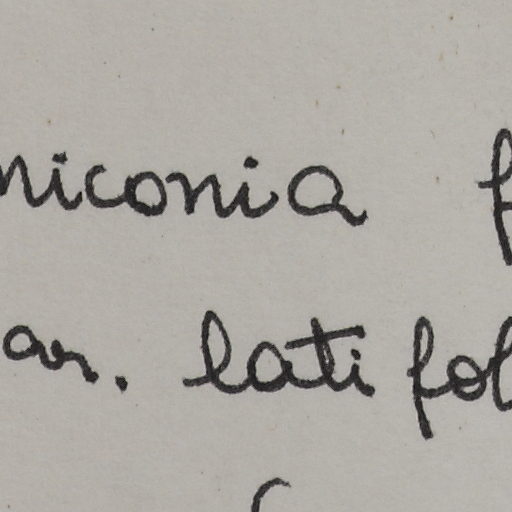 niconia f
ar. latifol